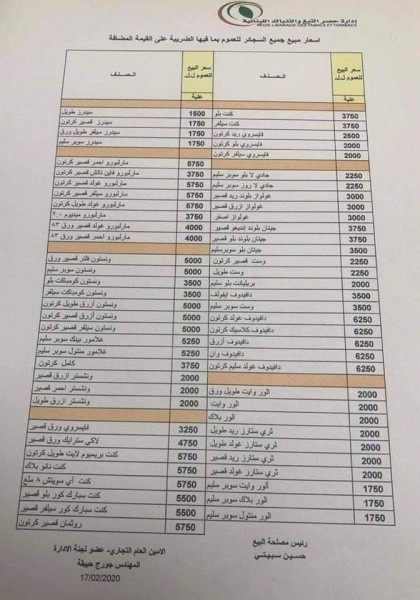 إدارة حصر التبغ والتنباك اللبنانية
REGIE LIBANAISE DES TABACS ET TOMBACS
اسعار مبيع جميع السجائر للعموم بما فيها الضريبة على القيمة المضافة
سعر البيع للعموم ل.ل. الصنف
علبة
3750 كنت بلو
3750 كنت سيلفر
2500 فايسروي ريد كرتون
2000 فايسروي بلو كرتون
2000 فايسروي سيلفر كرتون
2250 جادي لا بلو سوبر سليم
2250 جادي لا روز سوبر سليم
3000 غولواز بلوند ريد قصير
3000 غولواز ازرق قصير
3000 غولواز اصفر
3750 جيتان بلوند إنديغو قصير
3750 جيتان بلوند بلو قصير
3500 جيتان بلو سوبرسليم
2250 وست قصير كرتون
2250 وست طويل
2000 بريليانت بلو سوبر سليم
3500 دافيدوف ايفولف
3500 وست سوبر سليم
6250 دافيدوف غولد كرتون
6250 دافيدوف كلاسيك كرتون
6250 دافيدوف أزرق
6250 دافيدوف وان
6250 دافيدوف غولد سليم كرتون
2000 الور طويل ورق
2000 الور وايت
2000 الور بلاك
2000 ثري ستارز ريد طويل
2000 ثري ستارز غولد طويل
2000 ثري ستارز ريد قصير
2000 ثري ستارز غولد قصير
1750 ألور وايت سوبر سليم
1750 الور بلاك سوبر سليم
1750 الور منتول سوبر سليم
سعر البيع للعموم ل.ل. الصنف
علبة
1500 سيدرز طويل
1750 سيدرز قصير كرتون
1750 سيدرز سيلفر طويل ورق
1750 سيدرز سوبر سليم
5750 مارلبورو احمر قصير كرتون
3750 مارلبورو فاين تاتش قصير كرتون
5750 مارلبورو غولد قصير كرتون
5750 مارلبورو غولد طويل كرتون
3750 مارلبورو ميديوم ٢٠
4000 مارلبورو غولد قصير ورق ٨٣
4000 مارلبورو احمر قصير ورق ٨٣
5000 ونستون فلتر قصير ورق
5000 ونستون سوبر سليم
3500 ونستون كومباكت بلو
3500 ونستون كومباكت سيلفر
5000 ونستون ازرق طويل كرتون
5000 ونستون أزرق قصير كرتون
5000 ونستون سيلفر قصير كرتون
5250 غلامور بينك سوبر سليم
5250 غلامور منتول سوبر سليم
3750 كامل كرتون
2000 ونشستر ازرق قصير
2000 ونشستر احمر قصير
2000 ونشستر ازرق طويل
3250 فايسروي ورق قصير
4750 لاكي سترايك ورق قصير
5750 كنت بريميوم لايت طويل كرتون
5750 كنت نانو بلاك
5750 كنت آي سويتش ٨ ملغ
5500 كنت سبارك كور بلو قصير
5500 كنت سبارك كور سيلفر قصير
5750 روثمان قصير كرتون
رئيس مصلحة البيع
حسين سبيتي
الامين العام التجاري- عضو لجنة الادارة
المهندس جورج حبيقة
17/02/2020